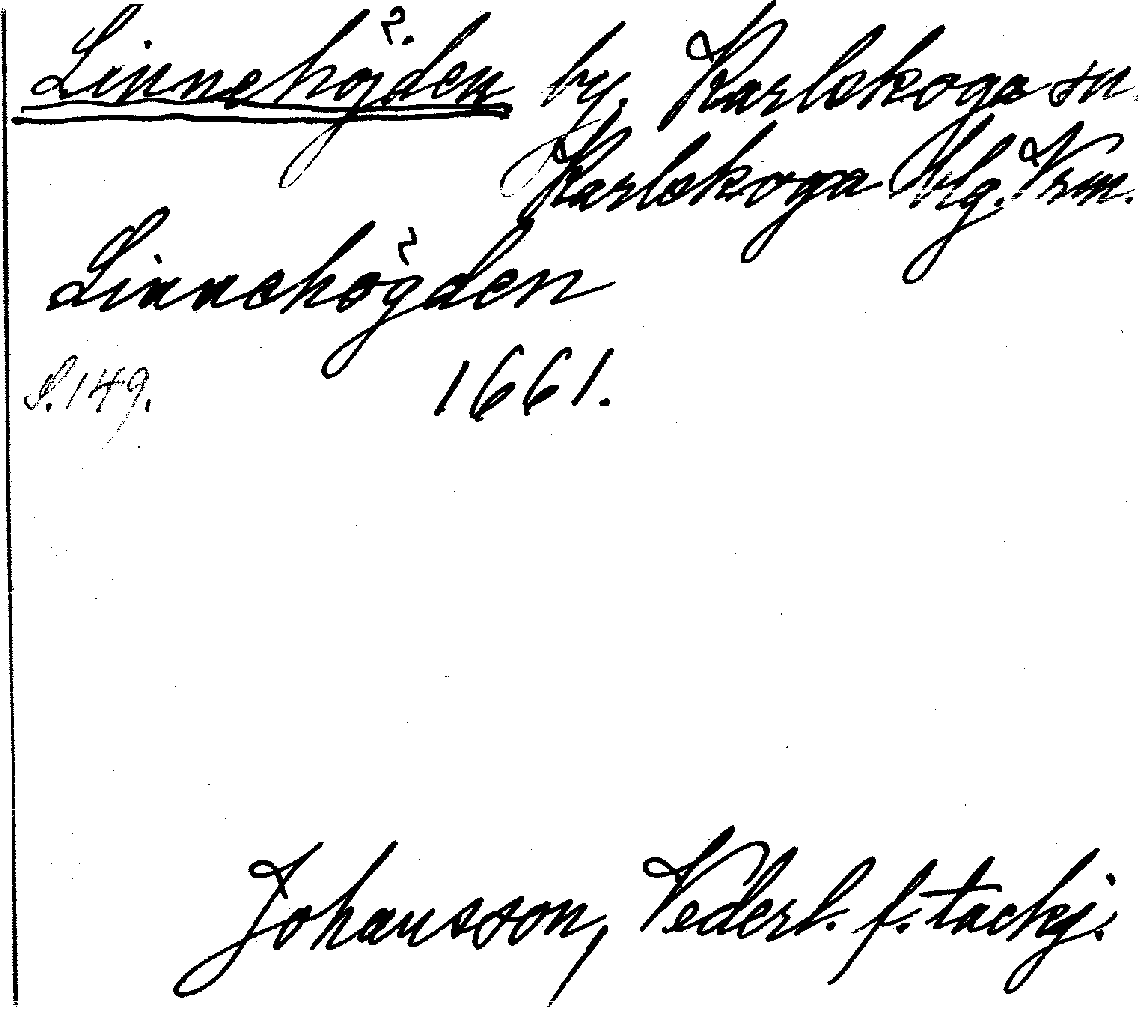 Linnehöjden by, Karlskoga sn.
Karlskoga Hg. Vrm.
Linnehögden
S. 149. 1661.
Johansson, Vederl. f. tackj.